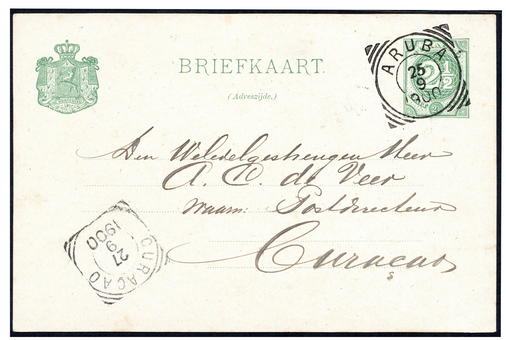 BRIEFKAART.
(Adreszijde.)
ARUBA
25
9
1900
2½
Den Weledelgestrengen Heer
A. C. de Veer
waarn: Postdirecteur
Curaçao
CURAÇAO
27
9
1900